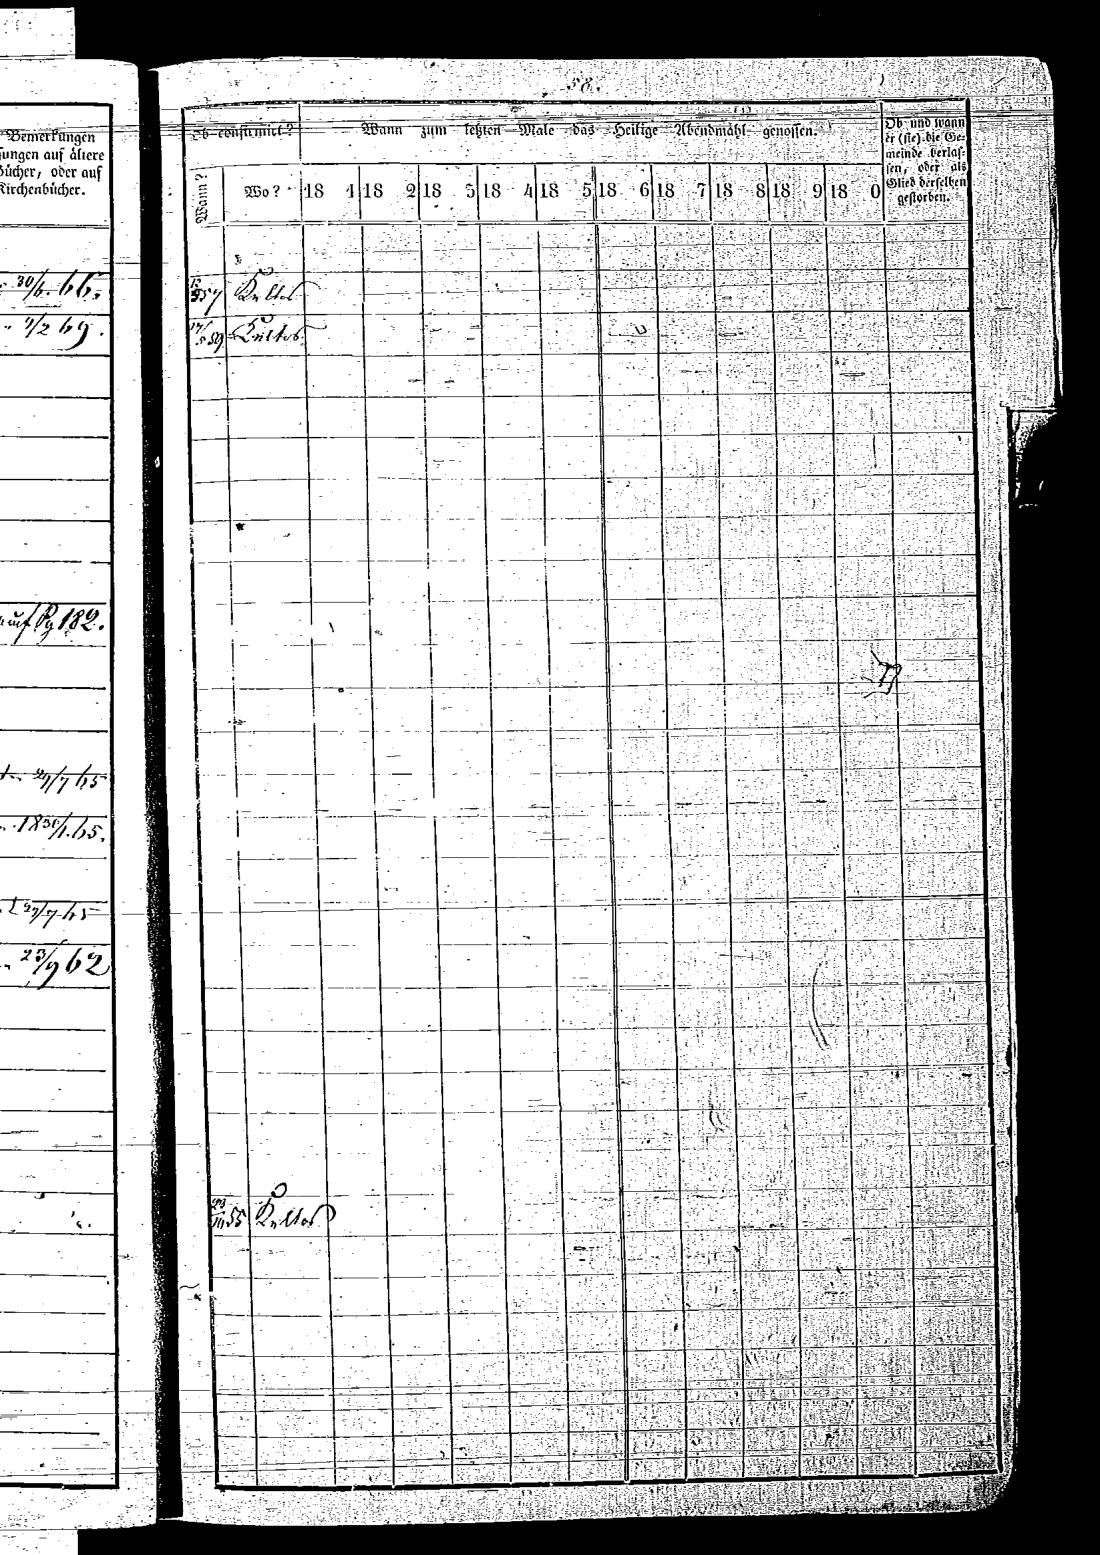 Bemerkungen
sungen auf ältere
Bücher, oder auf
Kirchenbücher.
30/6. 66.
7/2 69.
auf Pg 182.
27/7 65
1830/1. 65.
27/7 65
23/9 62
58.
Ob confirmirt?
Wann zum letzten Male das Heilige Abendmahl genossen.
Ob und wann
er (sie) die Ge-
meinde verlas-
sen, oder als
Glied derselben
gestorben.
Wann?
Wo?
18 1 18 2 18 3 18 4 18 5 18 6 18 7 18 8 18 9 18 0
57
59
55